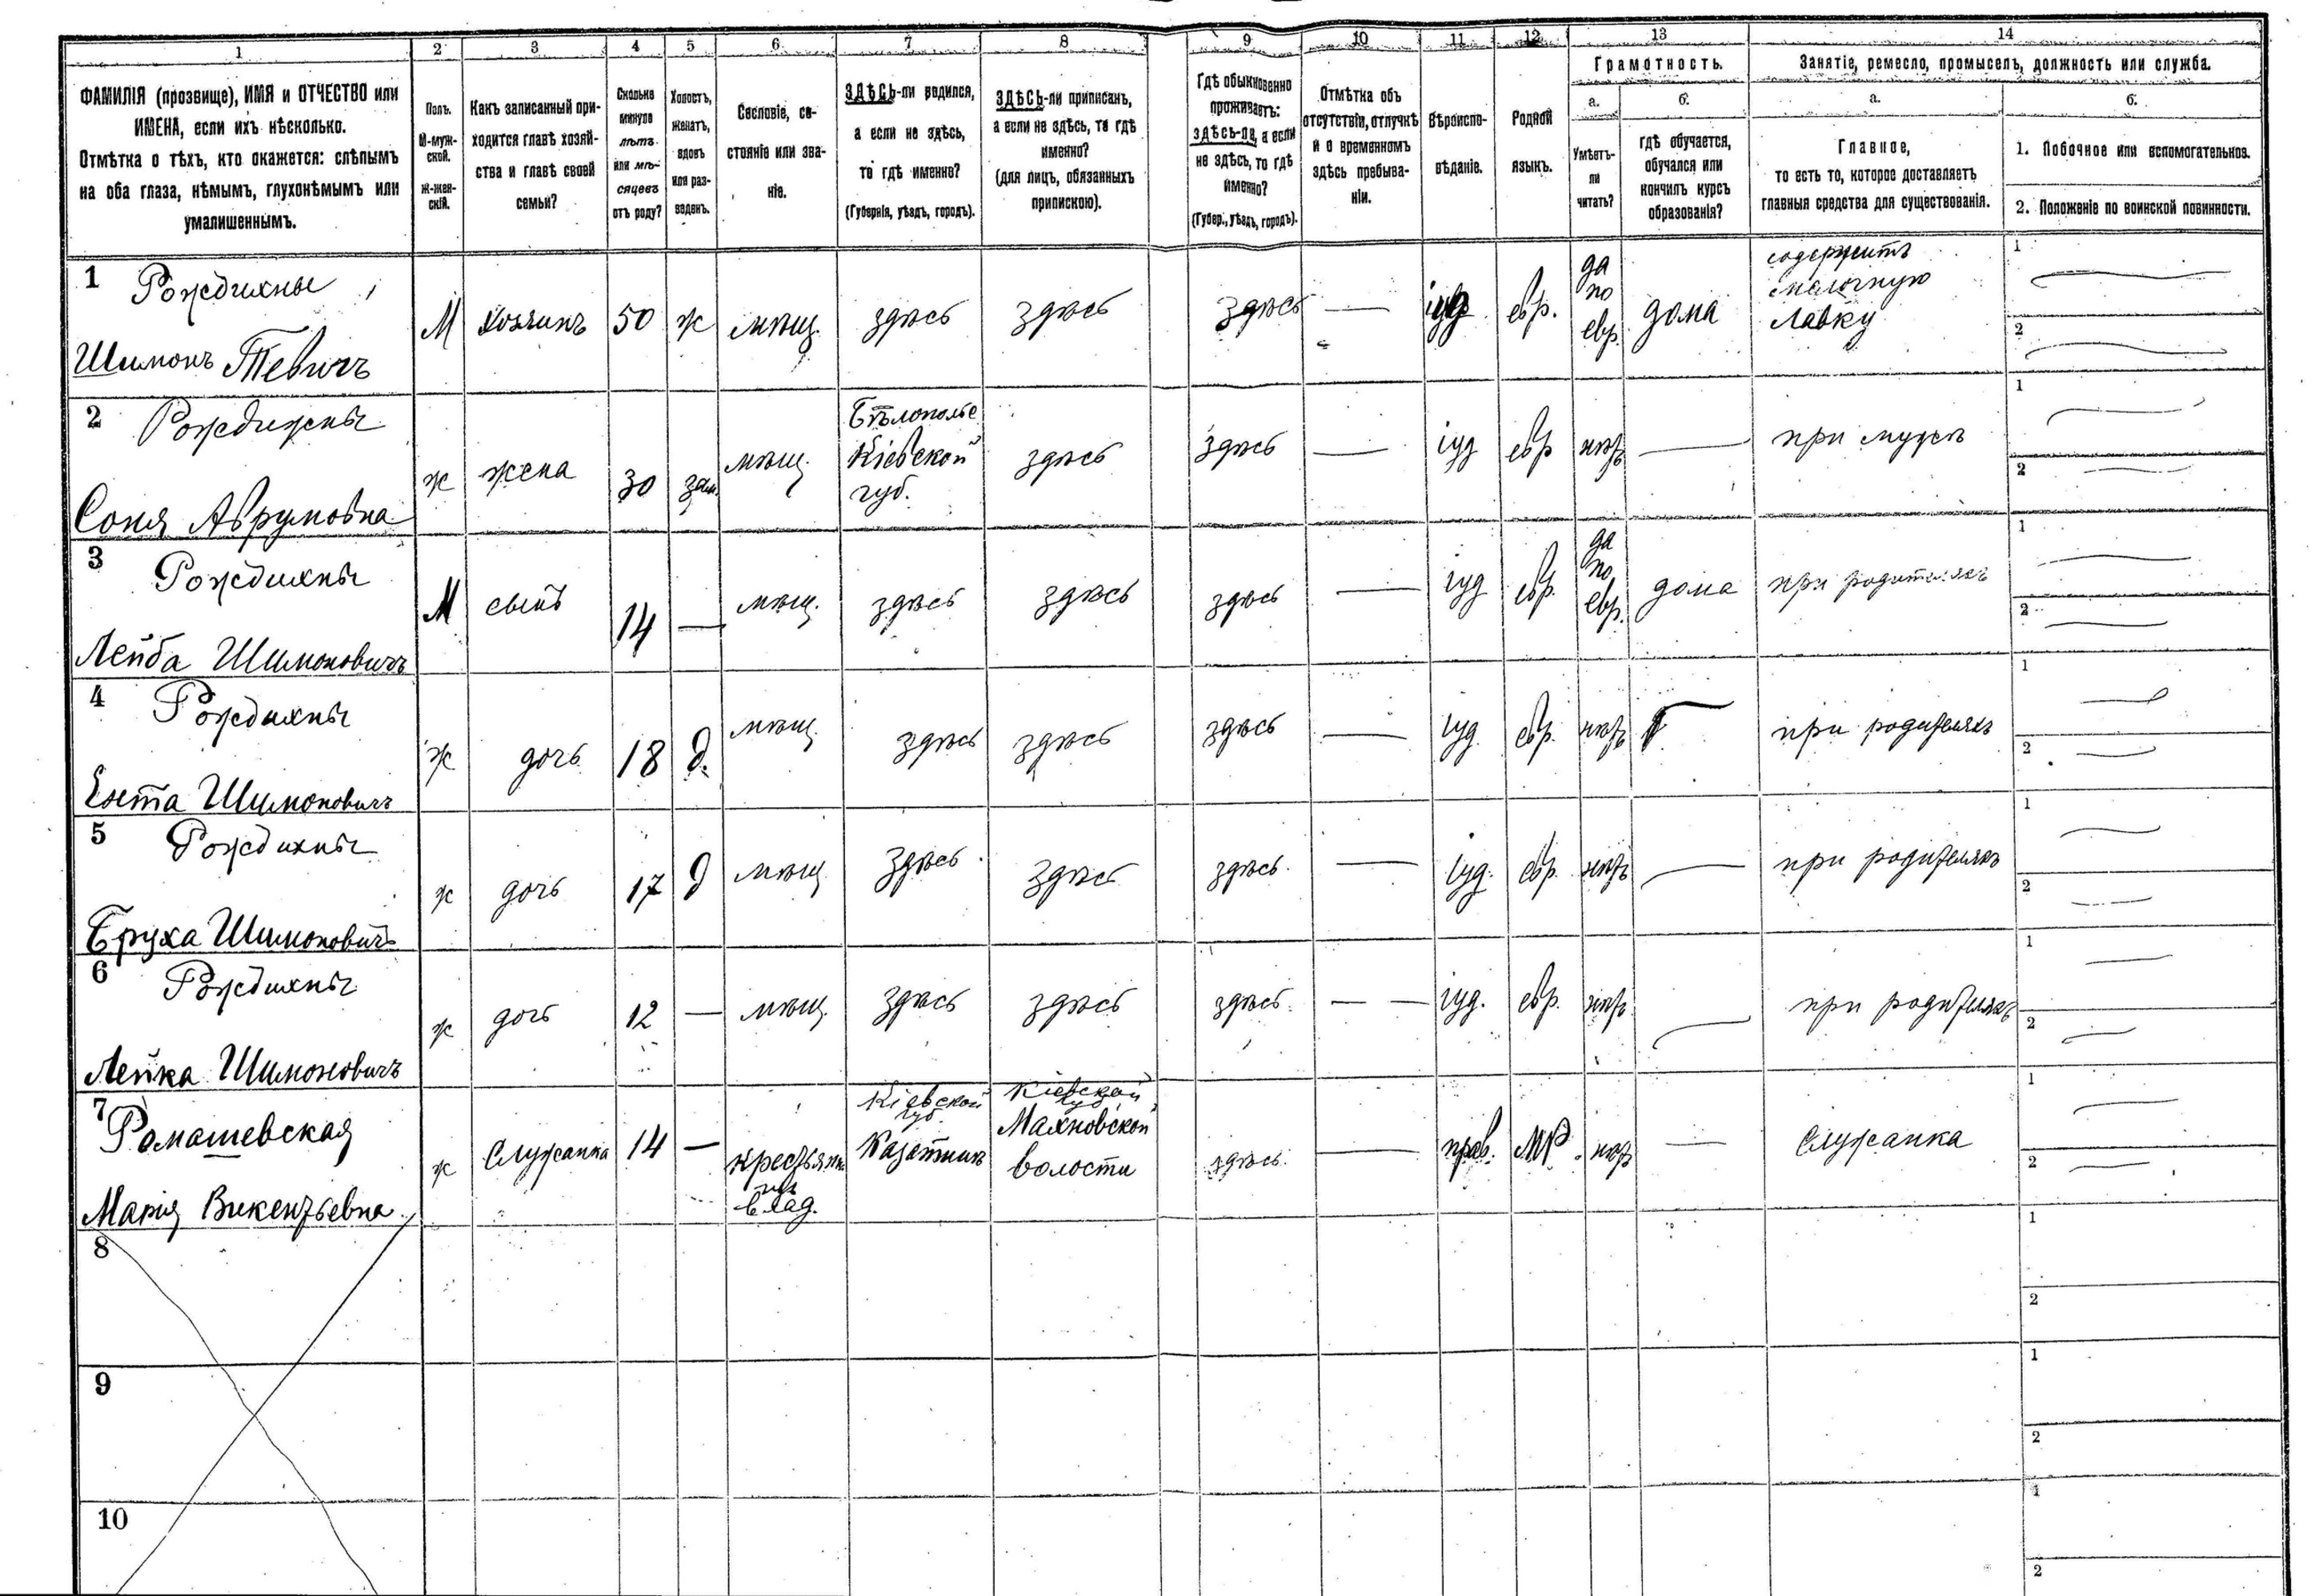 1 2 3 4 5 6 7 8 9 10 11 12 13 14
ФАМИЛІЯ (прозвище), ИМЯ и ОТЧЕСТВО или
ИМЕНА, если ихъ нѣсколько.
Отмѣтка о тѣхъ, кто окажется: слѣпымъ
на оба глаза, нѣмымъ, глухонѣмымъ или
умалишеннымъ.
Полъ.
М-муж-
ской.
Ж-жен-
скій.
Какъ записанный при-
ходится главѣ хозяй-
ства и главѣ своей
семьи?
Сколько
минуло
лѣтъ
или мѣ-
сяцевъ
отъ роду?
Холостъ,
женатъ,
вдовъ
или раз-
веденъ.
Сословіе, со-
стояніе или зва-
ніе.
ЗДѢСЬ-ли родился,
а если не здѣсь,
то гдѣ именно?
(Губернія, уѣздъ, городъ).
ЗДѢСЬ-ли приписанъ,
а если не здѣсь, то гдѣ
именно?
(для лицъ, обязанныхъ
припискою).
Гдѣ обыкновенно
проживаетъ:
ЗДѢСЬ-ли, а если
не здѣсь, то гдѣ
именно?
(Губер., уѣздъ, городъ).
Отмѣтка объ
отсутствіи, отлучкѣ
и о временномъ
здѣсь пребыва-
ніи.
Вѣроиспо-
вѣданіе.
Родной
языкъ.
Грамотность.
а.
Умѣетъ-
ли
читать?
б.
гдѣ обучается,
обучался или
кончилъ курсъ
образованія?
Занятіе, ремесло, промыселъ, должность или служба.
а.
Главное,
то есть то, которое доставляетъ
главныя средства для существованія.
б.
1. Побочное или вспомогательное.
2. Положеніе по воинской повинности.
1
Шимонъ Тевичъ
М хозяинъ 50 ж мѣщ. здѣсь здѣсь здѣсь — іуд евр.
да
по
евр.
дома
содержитъ
мелочную
лавку
1
2
2
Соня Аврумовна
ж жена 30 зам. мѣщ.
Бѣлополье
Кіевской
губ.
здѣсь здѣсь — іуд евр нѣтъ — при мужѣ
1
2
3
Лейба Шимоновичъ
М сынъ 14 — мѣщ. здѣсь здѣсь здѣсь — іуд евр.
да
по
евр.
дома при родителяхъ
1
2
4
Ента Шимоновичъ
ж дочь 18 д. мѣщ. здѣсь здѣсь здѣсь — іуд. евр. нѣтъ — при родителяхъ
1
2
5
Бруха Шимоновичъ
ж дочь 17 д мѣщ здѣсь здѣсь здѣсь — іуд. евр. нѣтъ — при родителяхъ
1
2
6
Лейка Шимоновичъ
ж дочь 12 — мѣщ. здѣсь здѣсь здѣсь — — іуд. евр. нѣтъ — при родителяхъ
1
2
7
Ромашевская
Марія Викентьевна
ж Служанка 14 —
влад.
Кіевской
губ
Казатинъ
Кіевской
губ
Махновской
волости
здѣсь — прав. МР. нѣтъ — Служанка
1
2
8
1
2
9
1
2
10
1
2